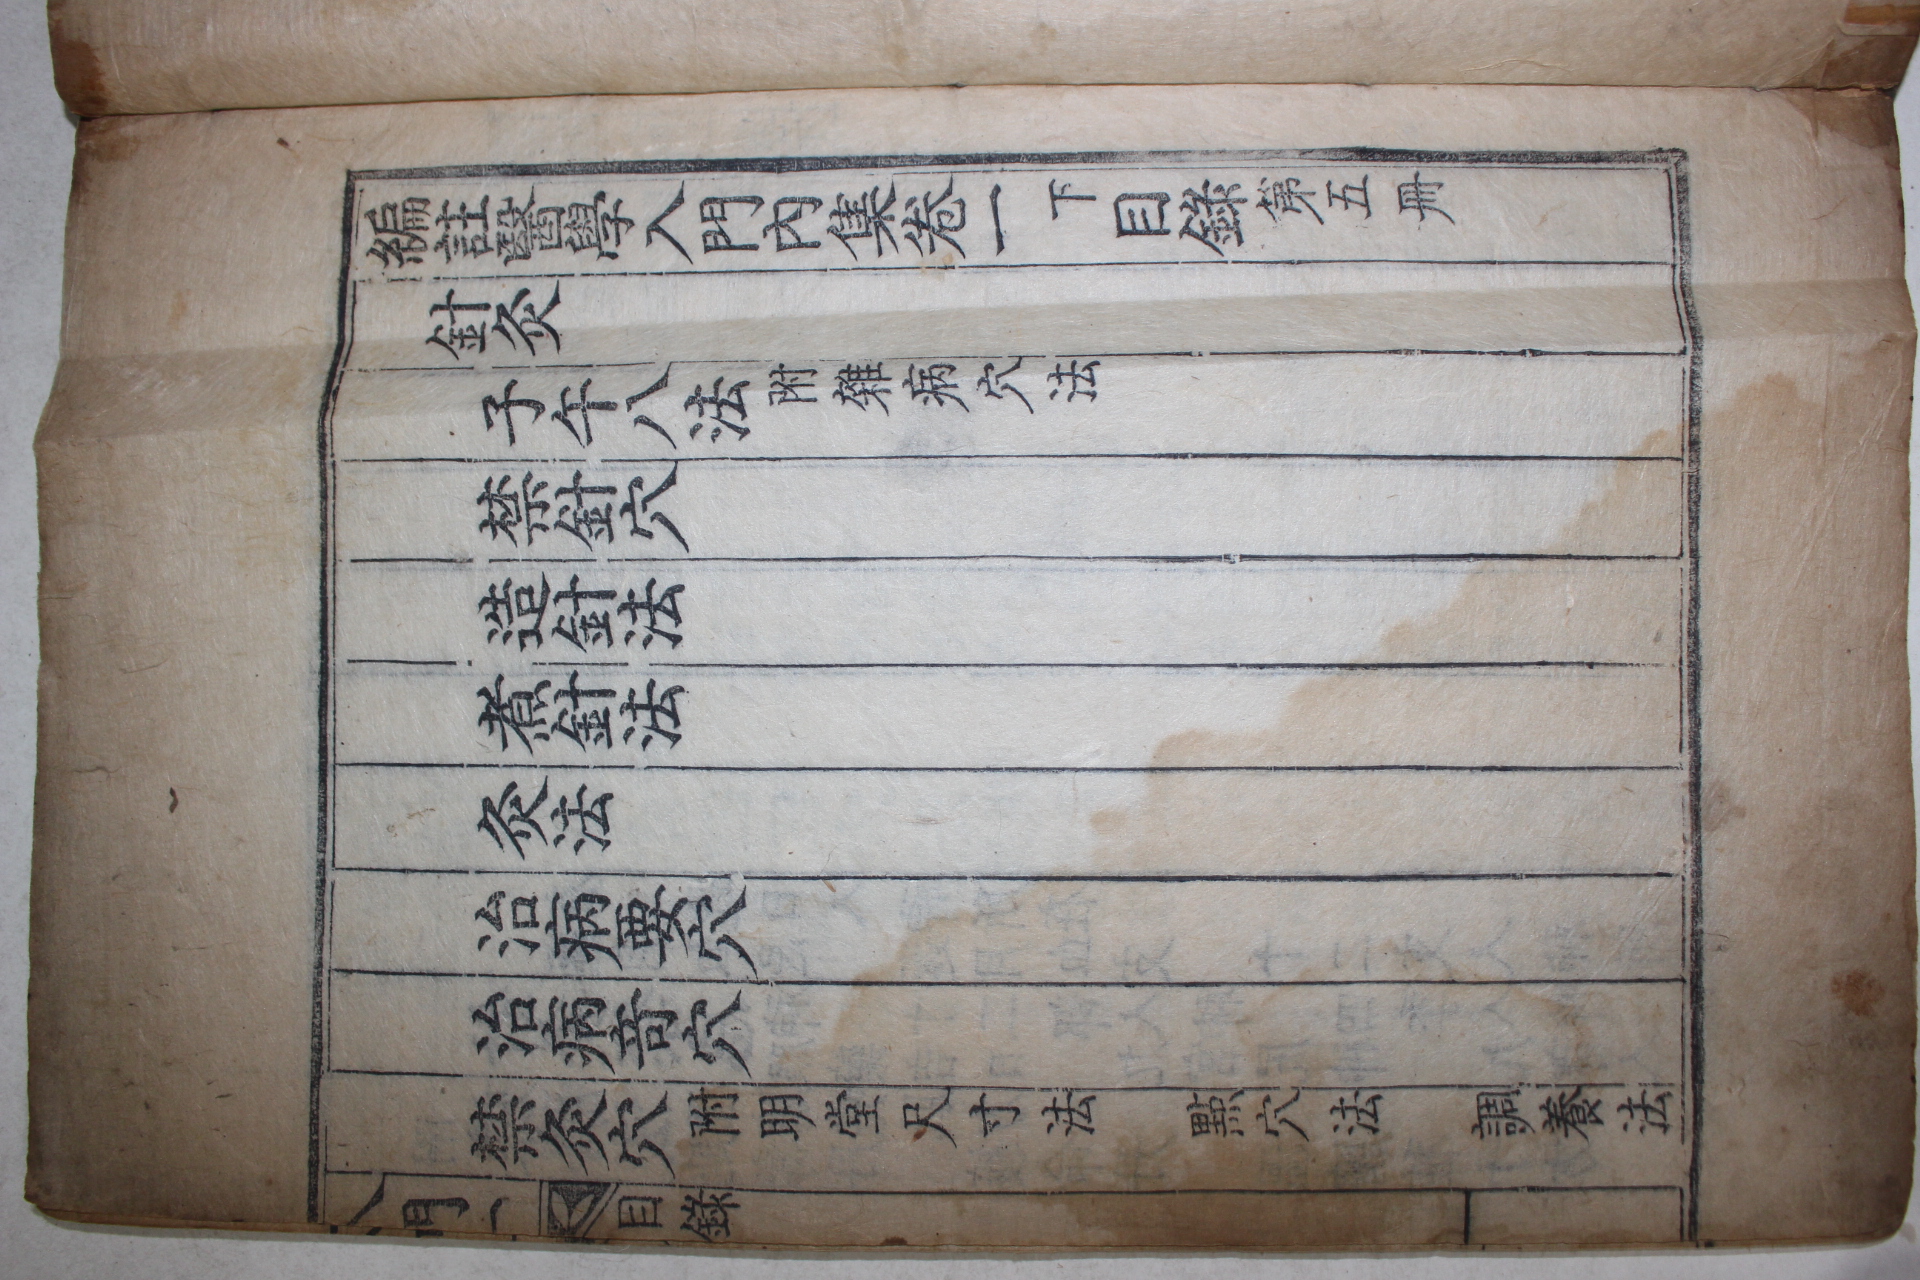 編註醫學入門內集卷一下目錄第五冊
針灸
子午八法附雜病穴法
禁針穴
造針法
煮針法
灸法
治病要穴
治病奇穴
禁灸穴附明堂尺寸法 點穴法 調養法
入門一 目錄